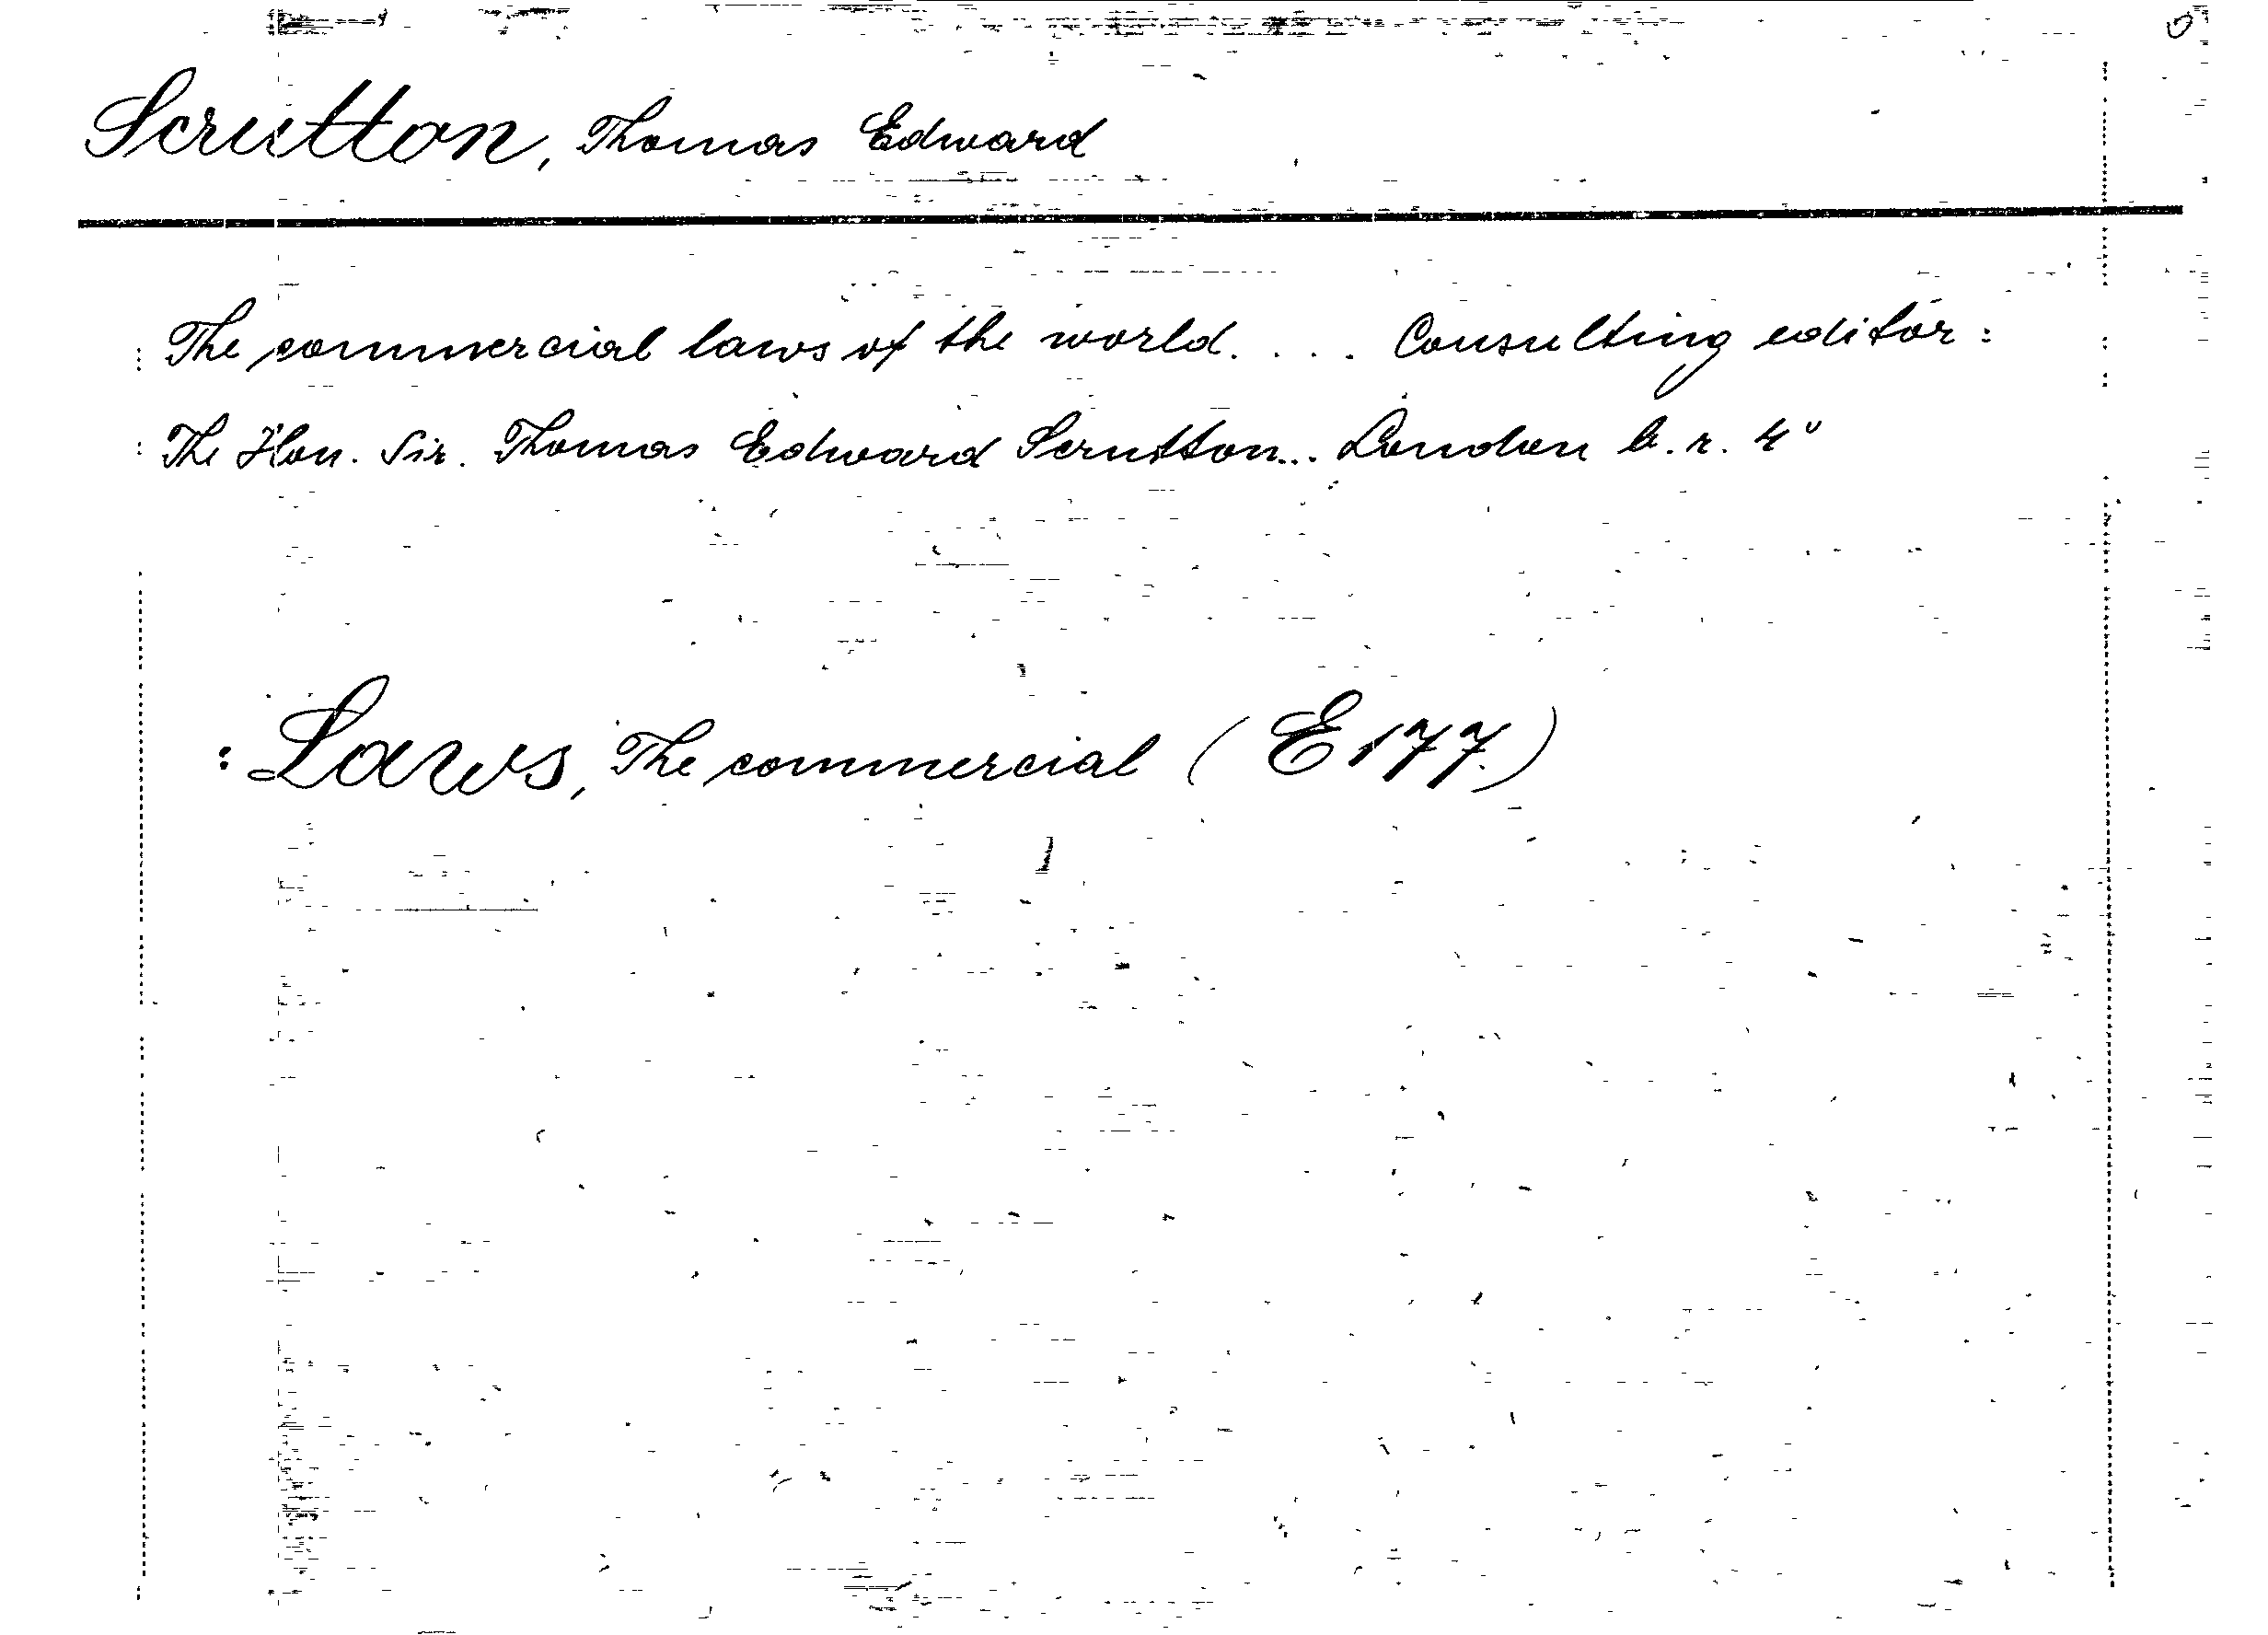 Scrutton, Thomas Edward
The commercial laws of the world. ... Consulting editor:
The Hon. Sir. Thomas Edward Scrutton... London b. r. 4°
: Laws, The commercial (E 177.)